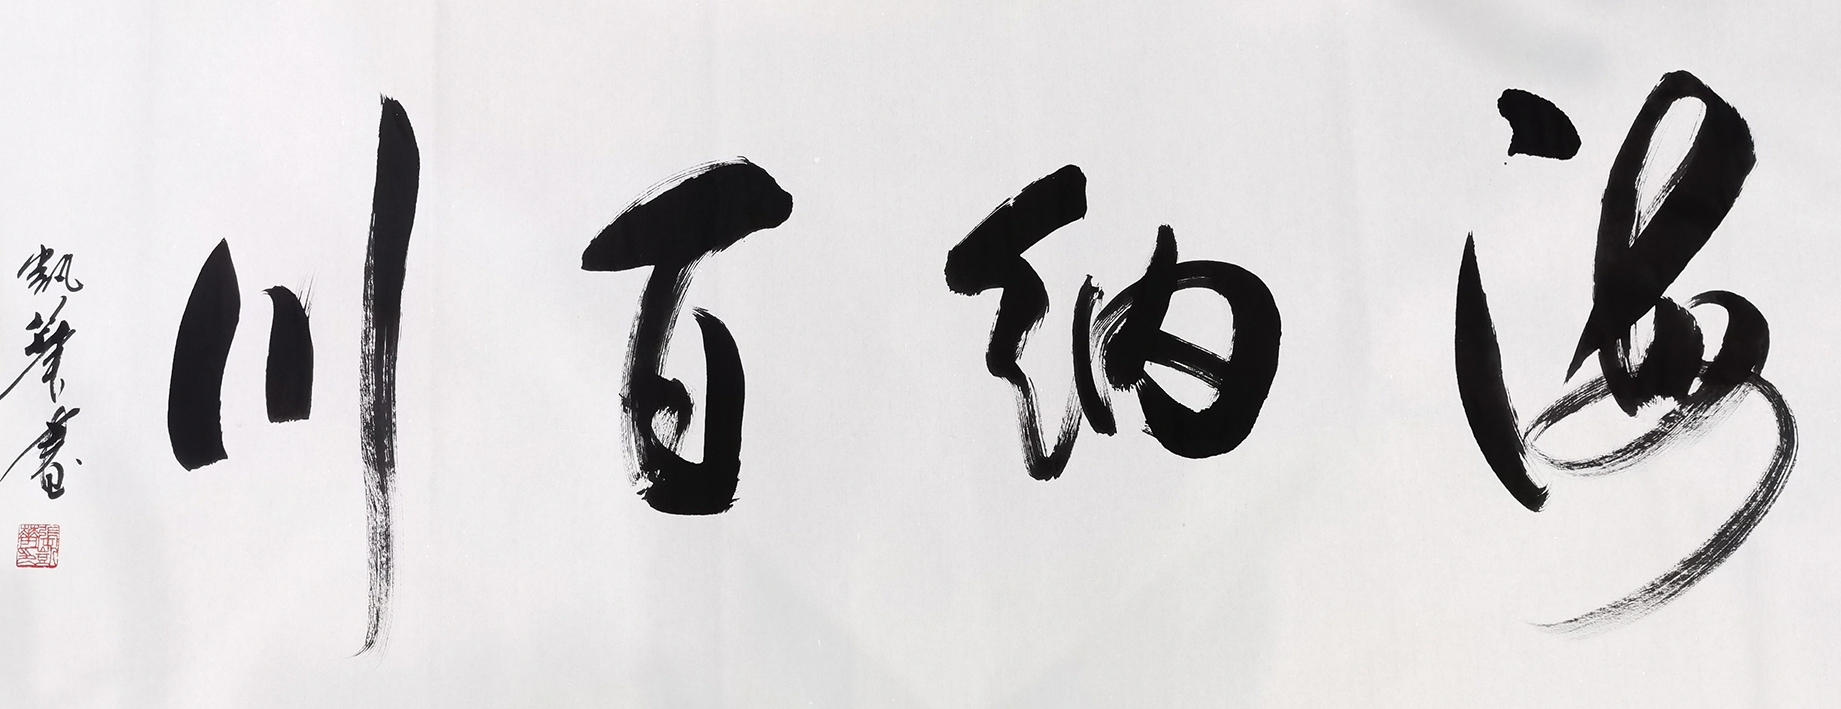 海纳百川
凯华书